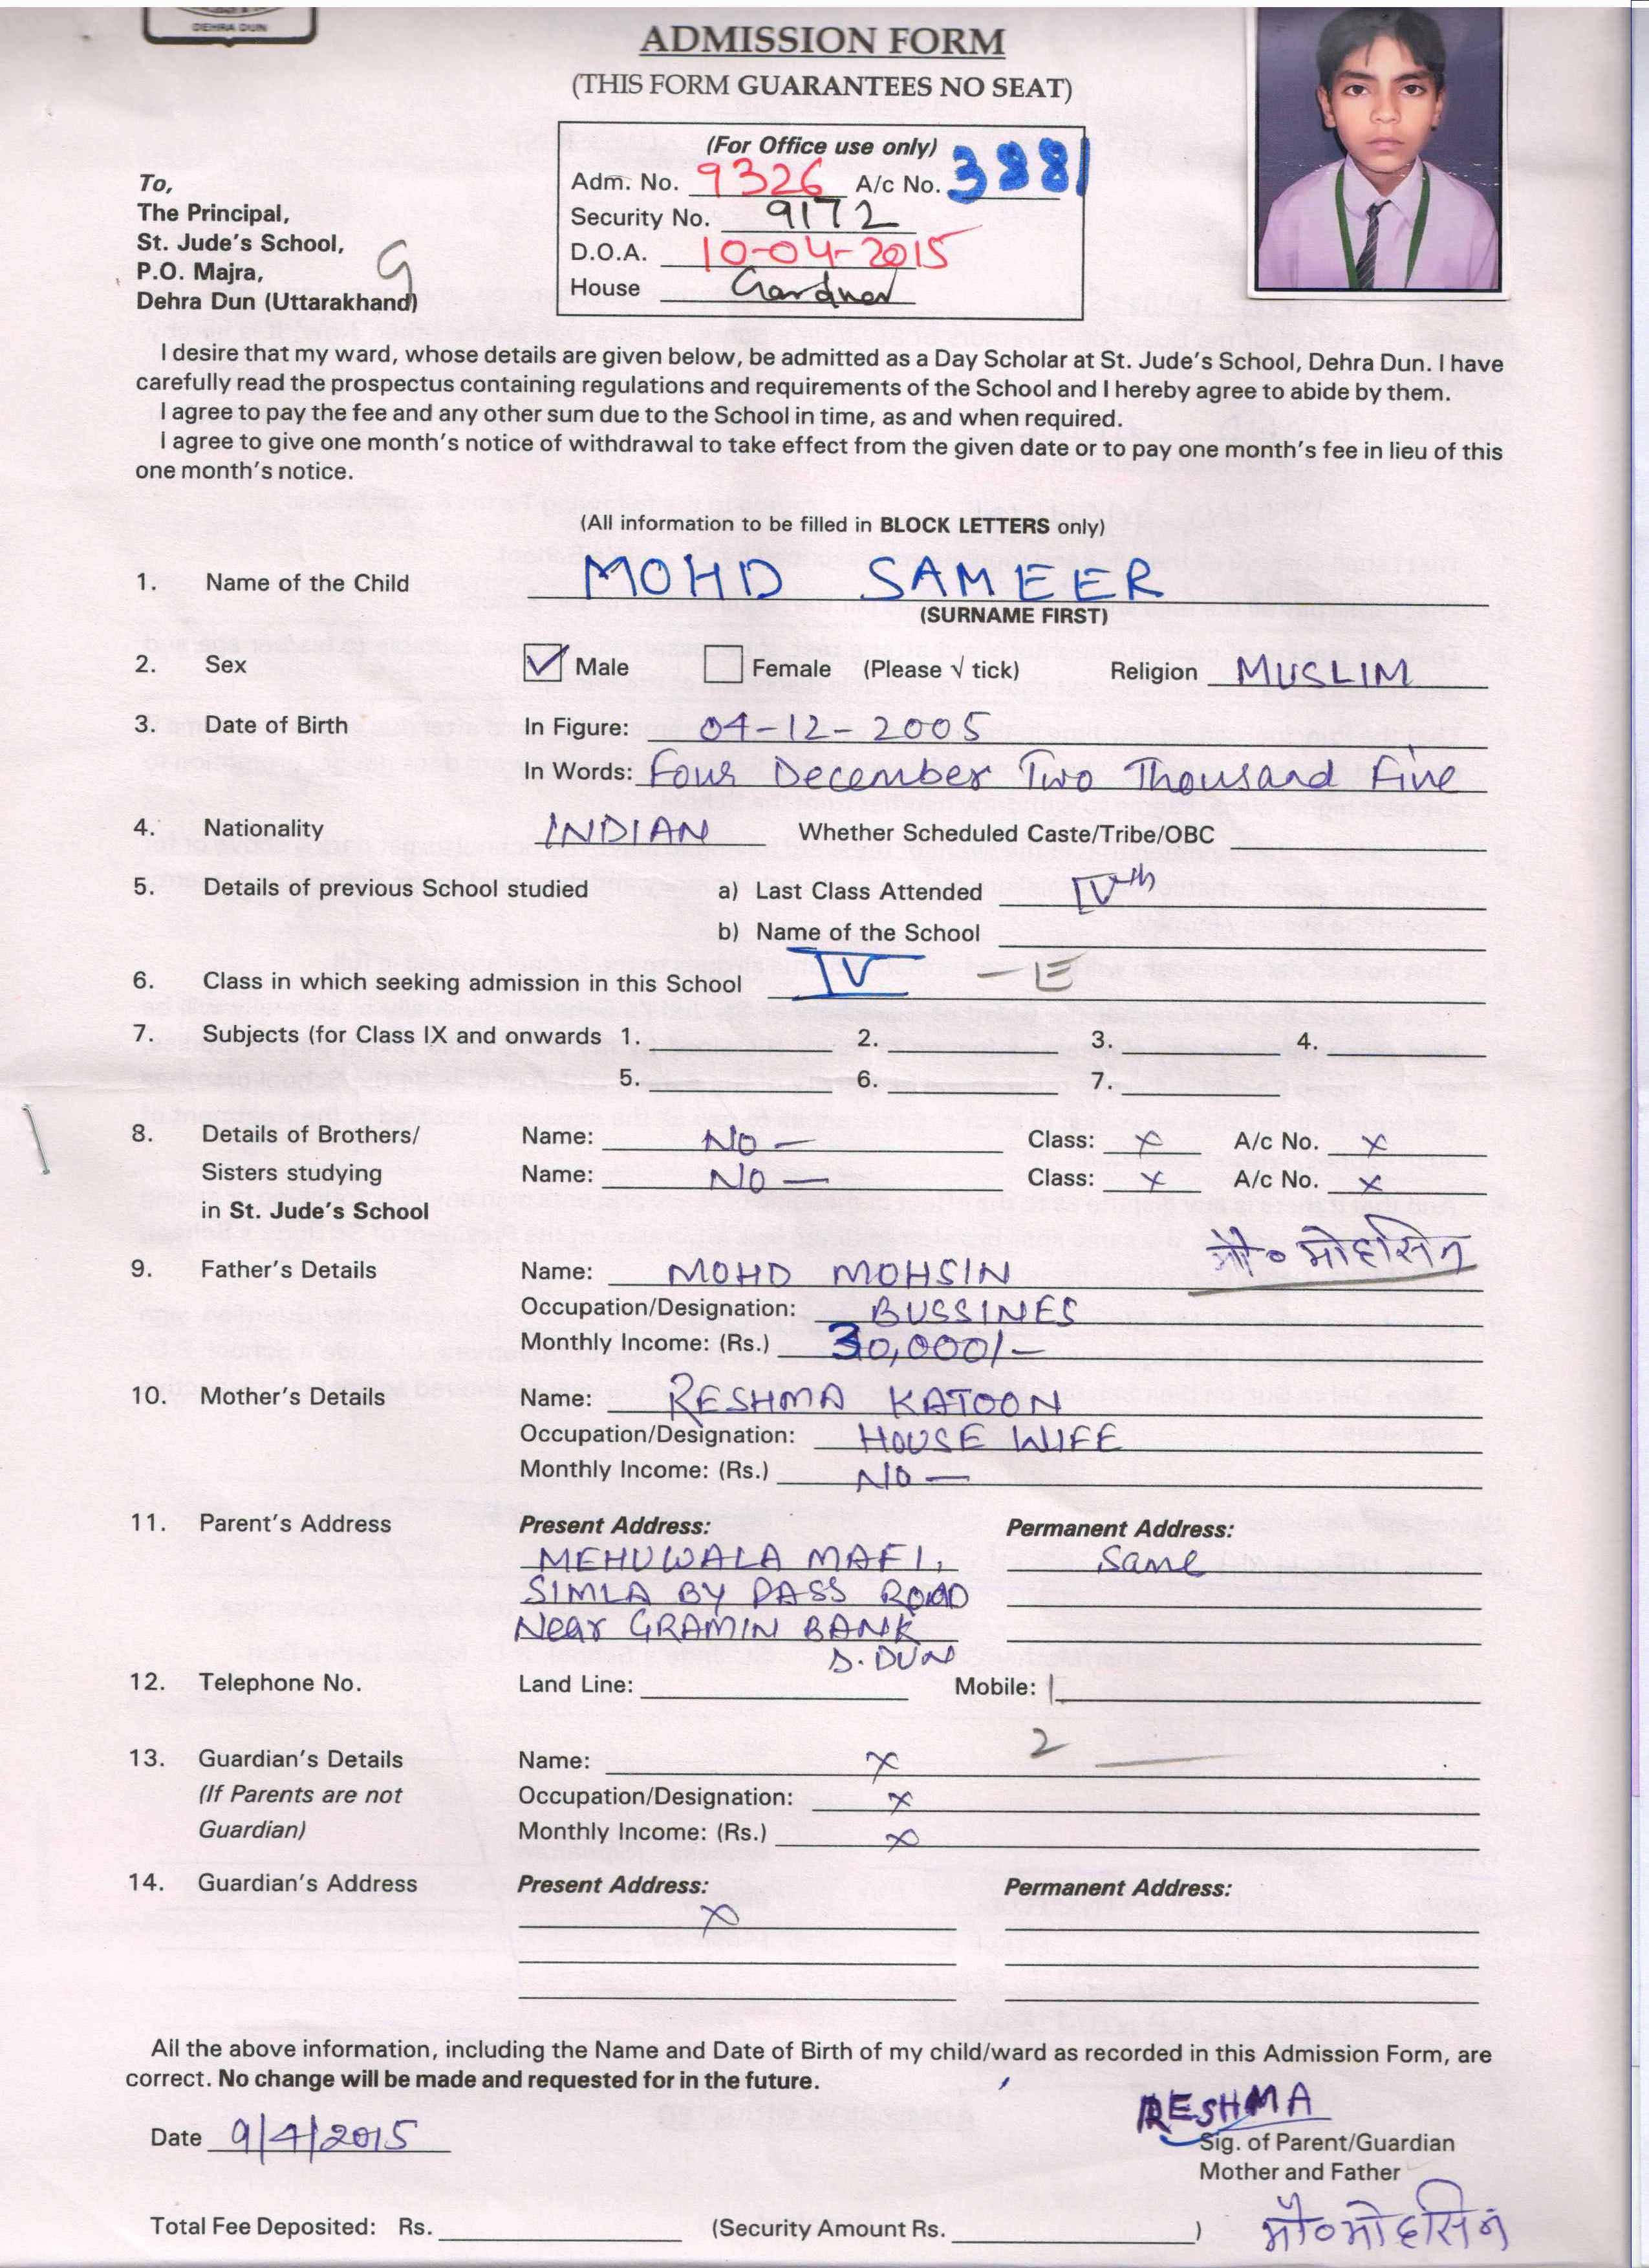 DEHRA DUN
ADMISSION FORM
(THIS FORM GUARANTEES NO SEAT)
(For Office use only)
Adm. No. 9326 A/c No. 3881
Security No. 9172
D.O.A. 10-04-2015
House Gardner
To,
The Principal,
St. Jude's School,
P.O. Majra,
Dehra Dun (Uttarakhand)
9
I desire that my ward, whose details are given below, be admitted as a Day Scholar at St. Jude's School, Dehra Dun. I have
carefully read the prospectus containing regulations and requirements of the School and I hereby agree to abide by them.
I agree to pay the fee and any other sum due to the School in time, as and when required.
I agree to give one month's notice of withdrawal to take effect from the given date or to pay one month's fee in lieu of this
one month's notice.
(All information to be filled in BLOCK LETTERS only)
1. Name of the Child MOHD SAMEER
(SURNAME FIRST)
2. Sex Male Female (Please √ tick) Religion MUSLIM
3. Date of Birth In Figure: 04-12-2005
In Words: Four December Two Thousand Five
4. Nationality INDIAN Whether Scheduled Caste/Tribe/OBC
5. Details of previous School studied a) Last Class Attended IVth
b) Name of the School
6. Class in which seeking admission in this School IV - E
7. Subjects (for Class IX and onwards 1. 2. 3. 4.
5. 6. 7.
8. Details of Brothers/ Name: NO — Class: × A/c No. ×
Sisters studying Name: NO — Class: × A/c No. ×
in St. Jude's School
मौ० मोहसिन
9. Father's Details Name: MOHD MOHSIN
Occupation/Designation: BUSSINES
Monthly Income: (Rs.) 30,000/-
10. Mother's Details Name: RESHMA KATOON
Occupation/Designation: HOUSE WIFE
Monthly Income: (Rs.) NO —
11. Parent's Address Present Address: Permanent Address:
MEHUWALA MAFI, Same
SIMLA BY PASS ROAD
Near GRAMIN BANK
D. DUN
12. Telephone No. Land Line: Mobile: 1
2
13. Guardian's Details Name: ×
(If Parents are not Occupation/Designation: ×
Guardian) Monthly Income: (Rs.) ×
14. Guardian's Address Present Address: Permanent Address:
×
All the above information, including the Name and Date of Birth of my child/ward as recorded in this Admission Form, are
correct. No change will be made and requested for in the future.
RESHMA
Date 9/4/2015 Sig. of Parent/Guardian
Mother and Father
Total Fee Deposited: Rs. (Security Amount Rs. )
मौ० मोहसिन